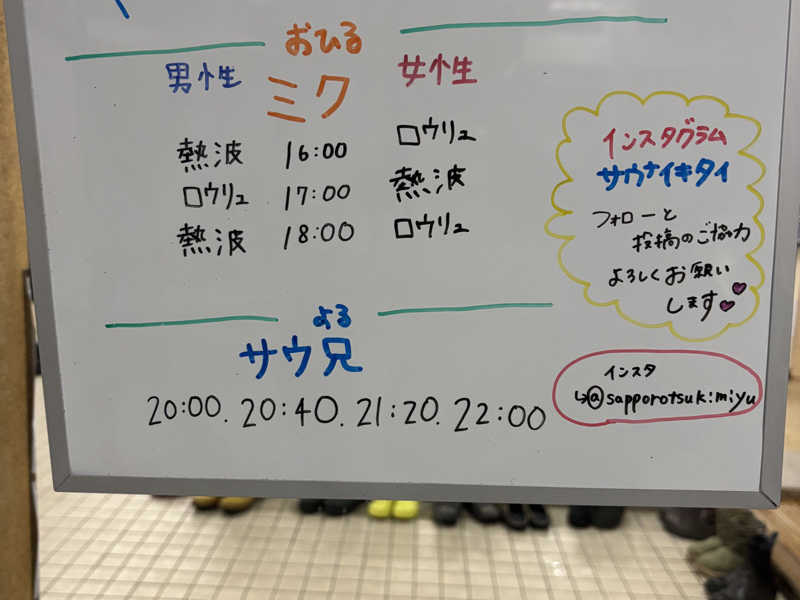 おひる
男性 ミク 女性
熱波 16:00 ロウリュ
ロウリュ 17:00 熱波
熱波 18:00 ロウリュ
よる
サウ兄
20:00. 20:40. 21:20. 22:00
インスタグラム
サウナイキタイ
フォローと
投稿のご協力
よろしくお願い
します
インスタ
↳@sapporotsukimiyu